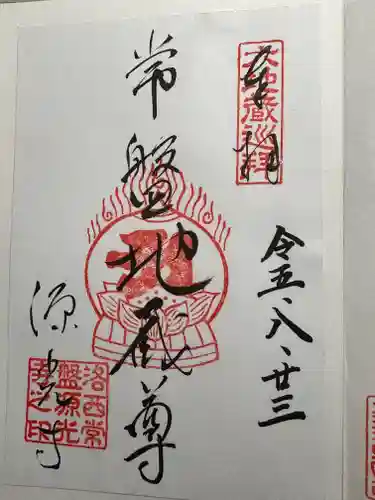 奉拝
六地蔵巡拝
令五、八、廿三
常盤地蔵尊
源光寺
洛西常
盤源光
寺之印